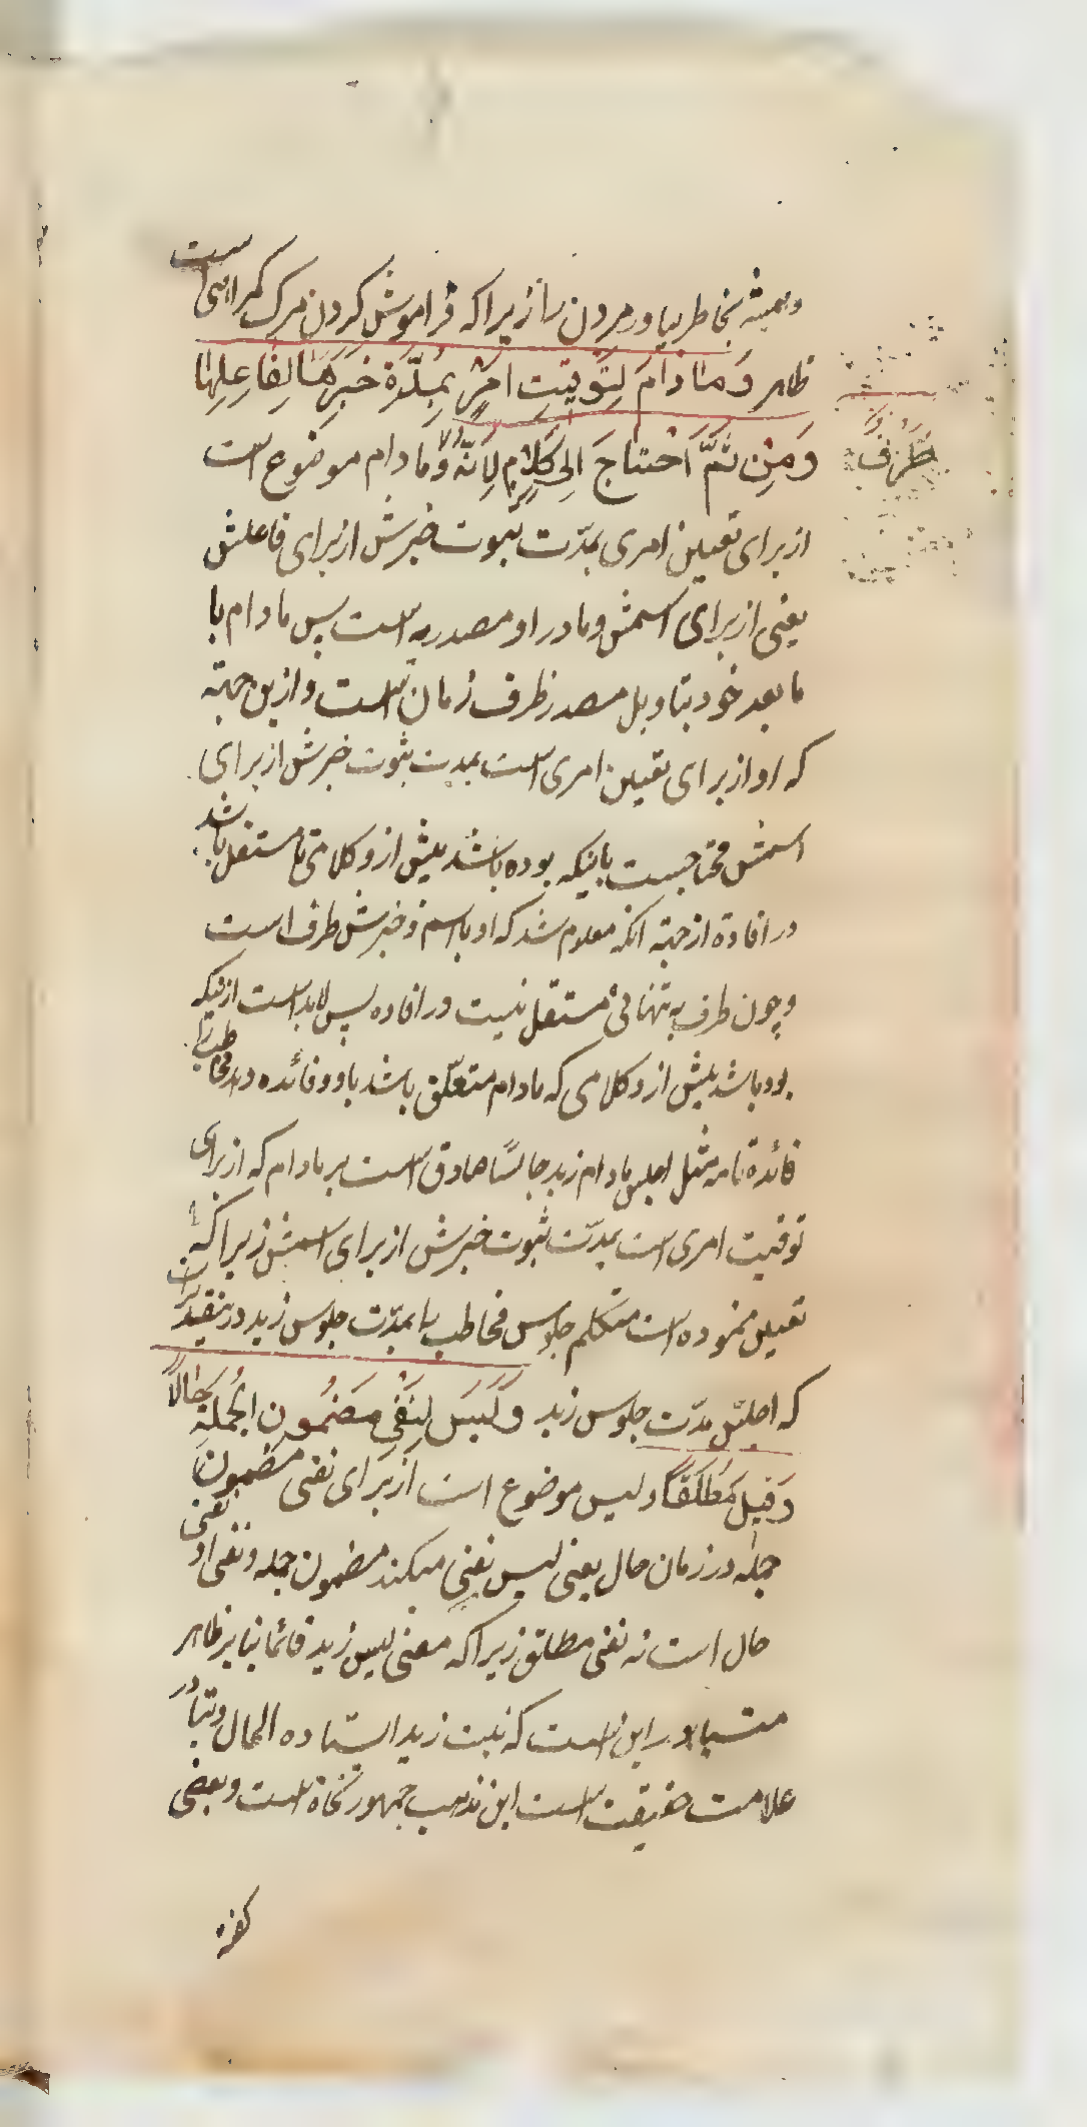 و همیشه بخاطر بیاور مردن را زیرا که فراموش کردن مرک کمراهی است
ظاهر وَمٰا دٰامَ لِتَوْقیتِ اَمْرٍ بِمُدَّةِ خَبَرِهٰا لِفٰاعِلِهٰا
وَمِنْ ثَمَّ اَحْتٰاجَ اِلٰی کَلٰامٍ لِاَنَّهُ و مادام موضوع است
ظَرْفٌ
از برای تعیین امری بمدّت ثبوت خبرش از برای فاعلش
یعنی از برای اسمش و ما در او مصدریه است پس مادام با
ما بعد خود بتاویل مصدر ظرف زمان است و ازین جهته
که او از برای تعیین امری است بمدت ثبوت خبرش از برای
اسمش محتاجست باینکه بوده باشد پیش از و کلامی تا مستقل باشد
در افادة از جهته انکه معلوم شد که او با اسم و خبرش ظرف است
و چون ظرف به تنهائی مستقل نیست در افاده پس لابد است ازینکه
بود باشد پیش از و کلامی که مادام متعلّق باشد باو و فائده دهد مخاطب را
فائدة تامه مثل اجلس مادام زید جالسًا صادق است بر مادام که از برای
توقیت امری است بمدّت ثبوت خبرش از برای اسمش زیرا که
تعیین نموده است متکلم جلوس مخاطب را بمدّت جلوس زید در تقدیر است
که اجلس مدّت جلوس زید وَ لَیْسَ لِنَفْیِ مَضْمُونِ الْجُمْلَةِ حٰالًا
وَقیلَ مُطْلَقًا و لیس موضوع است از برای نفی مضمون
جمله در زمان حال یعنی لیس نفی میکند مضمون جمله و نفی او نفی
حال است نه نفی مطلق زیرا که معنی لیس زید قائما بنا بر ظاهر
متبادر این است که نیست زید ایستاده الحال و تبادر
علامت حقیقت است این مذهب جمهور نحاة است و بعضی
کفته